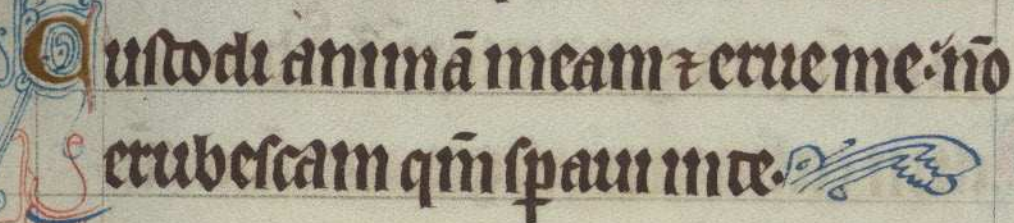 Custodi animā meam ⁊ erue me: nō
erubescam qm̄ sꝑaui in te.